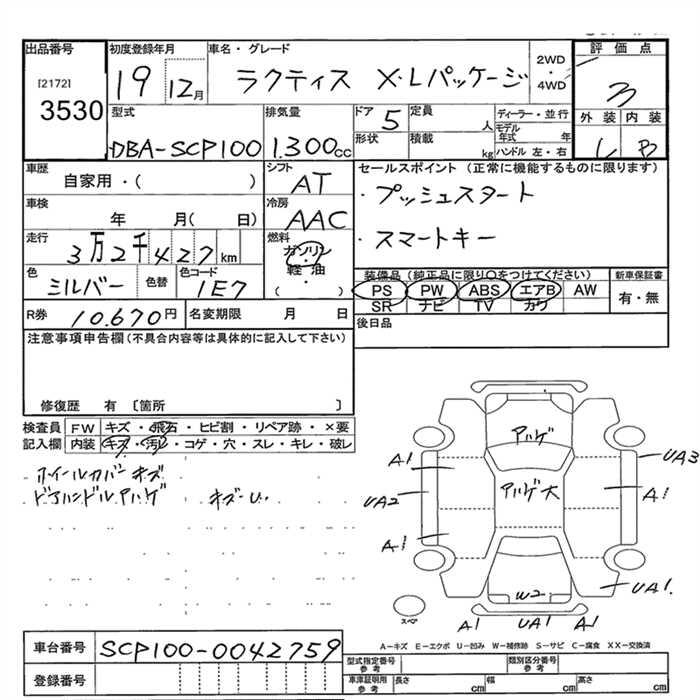 出品番号 初度登録年月 車名・グレード 2WD・4WD 評価点
[2172] 3530 19 12月 ラクティス X・Lパッケージ 3
型式 排気量 ドア 定員 ディーラー・並行 外装 内装
DBA-SCP100 1.300cc 5 人 モデル年式 年
形状 積載 kg ハンドル 左・右 B
車歴 シフト セールスポイント (正常に機能するものに限ります)
自家用・( ) AT ・プッシュスタート
車検 冷房
年 月( 日) AAC ・スマートキー
走行 燃料
3万2千427km ガソリン・軽油 ( )
色 色替 色コード 装備品(純正品に限り○をつけてください) 新車保証書
シルバー 1E7 PS PW ABS エアB AW 有・無
SR ナビ TV カワ
R券 10.670円 名変期限 月 日 後日品
注意事項申告欄(不具合内容等は具体的に記入して下さい)
修復歴 有 〔箇所 〕
検査員 FW キズ・飛石・ヒビ割・リペア跡・×要
記入欄 内装 キズ・汚れ・コゲ・穴・スレ・キレ・破レ
ホイールカバーキズ
ドアハンドルアハゲ キズ
アハゲ
A1 UA3
アハゲ大
UA2 A1
A1
UA1
W2
スペア
A1 UA1 A1
A-キズ E-エクボ U-凹み W-補修跡 S-サビ C-腐食 XX-交換済
車台番号 SCP100-0042759
型式指定番号 参考 類別区分番号 参考
登録番号 車庫証明用 参考 長さ cm 幅 cm 高さ cm